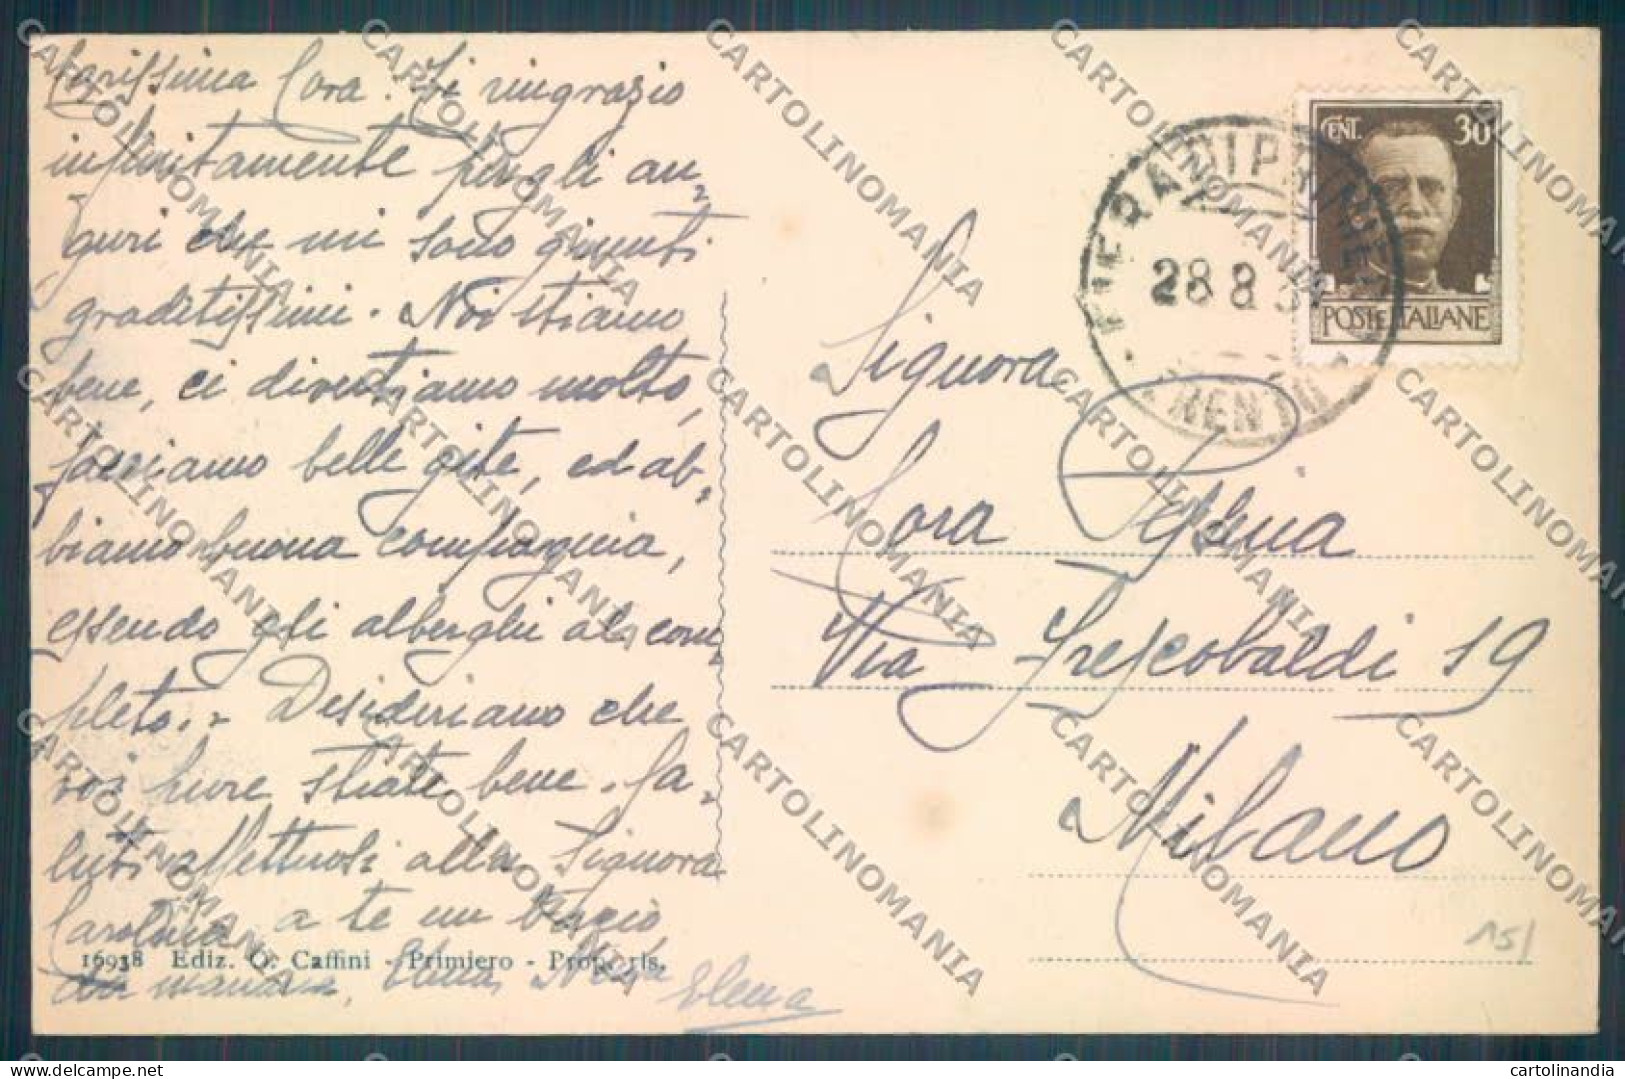 Carissima Cora. Ti ringrazio
infinitamente per gli au-
guri che mi sono giunti
graditissimi. Noi stiamo
bene, ci divertiamo molto,
facciamo belle gite, ed ab-
biamo buona compagnia,
essendo gli alberghi al com
pleto. - Desideriamo che
voi pure stiate bene. Sa-
luti affettuosi alla Signora
Carolina a te un bacio
16938 Ediz. O. Caffini - Primiero - Propr. ris.
Elena
CENT. 30
POSTE ITALIANE
FIERA DI PRIMIERO
28 8 3
TRENTO
Signora
Cora Pesina
Via Frescobaldi 19
Milano
151
CARTOLINOMANIA
cartolinandia